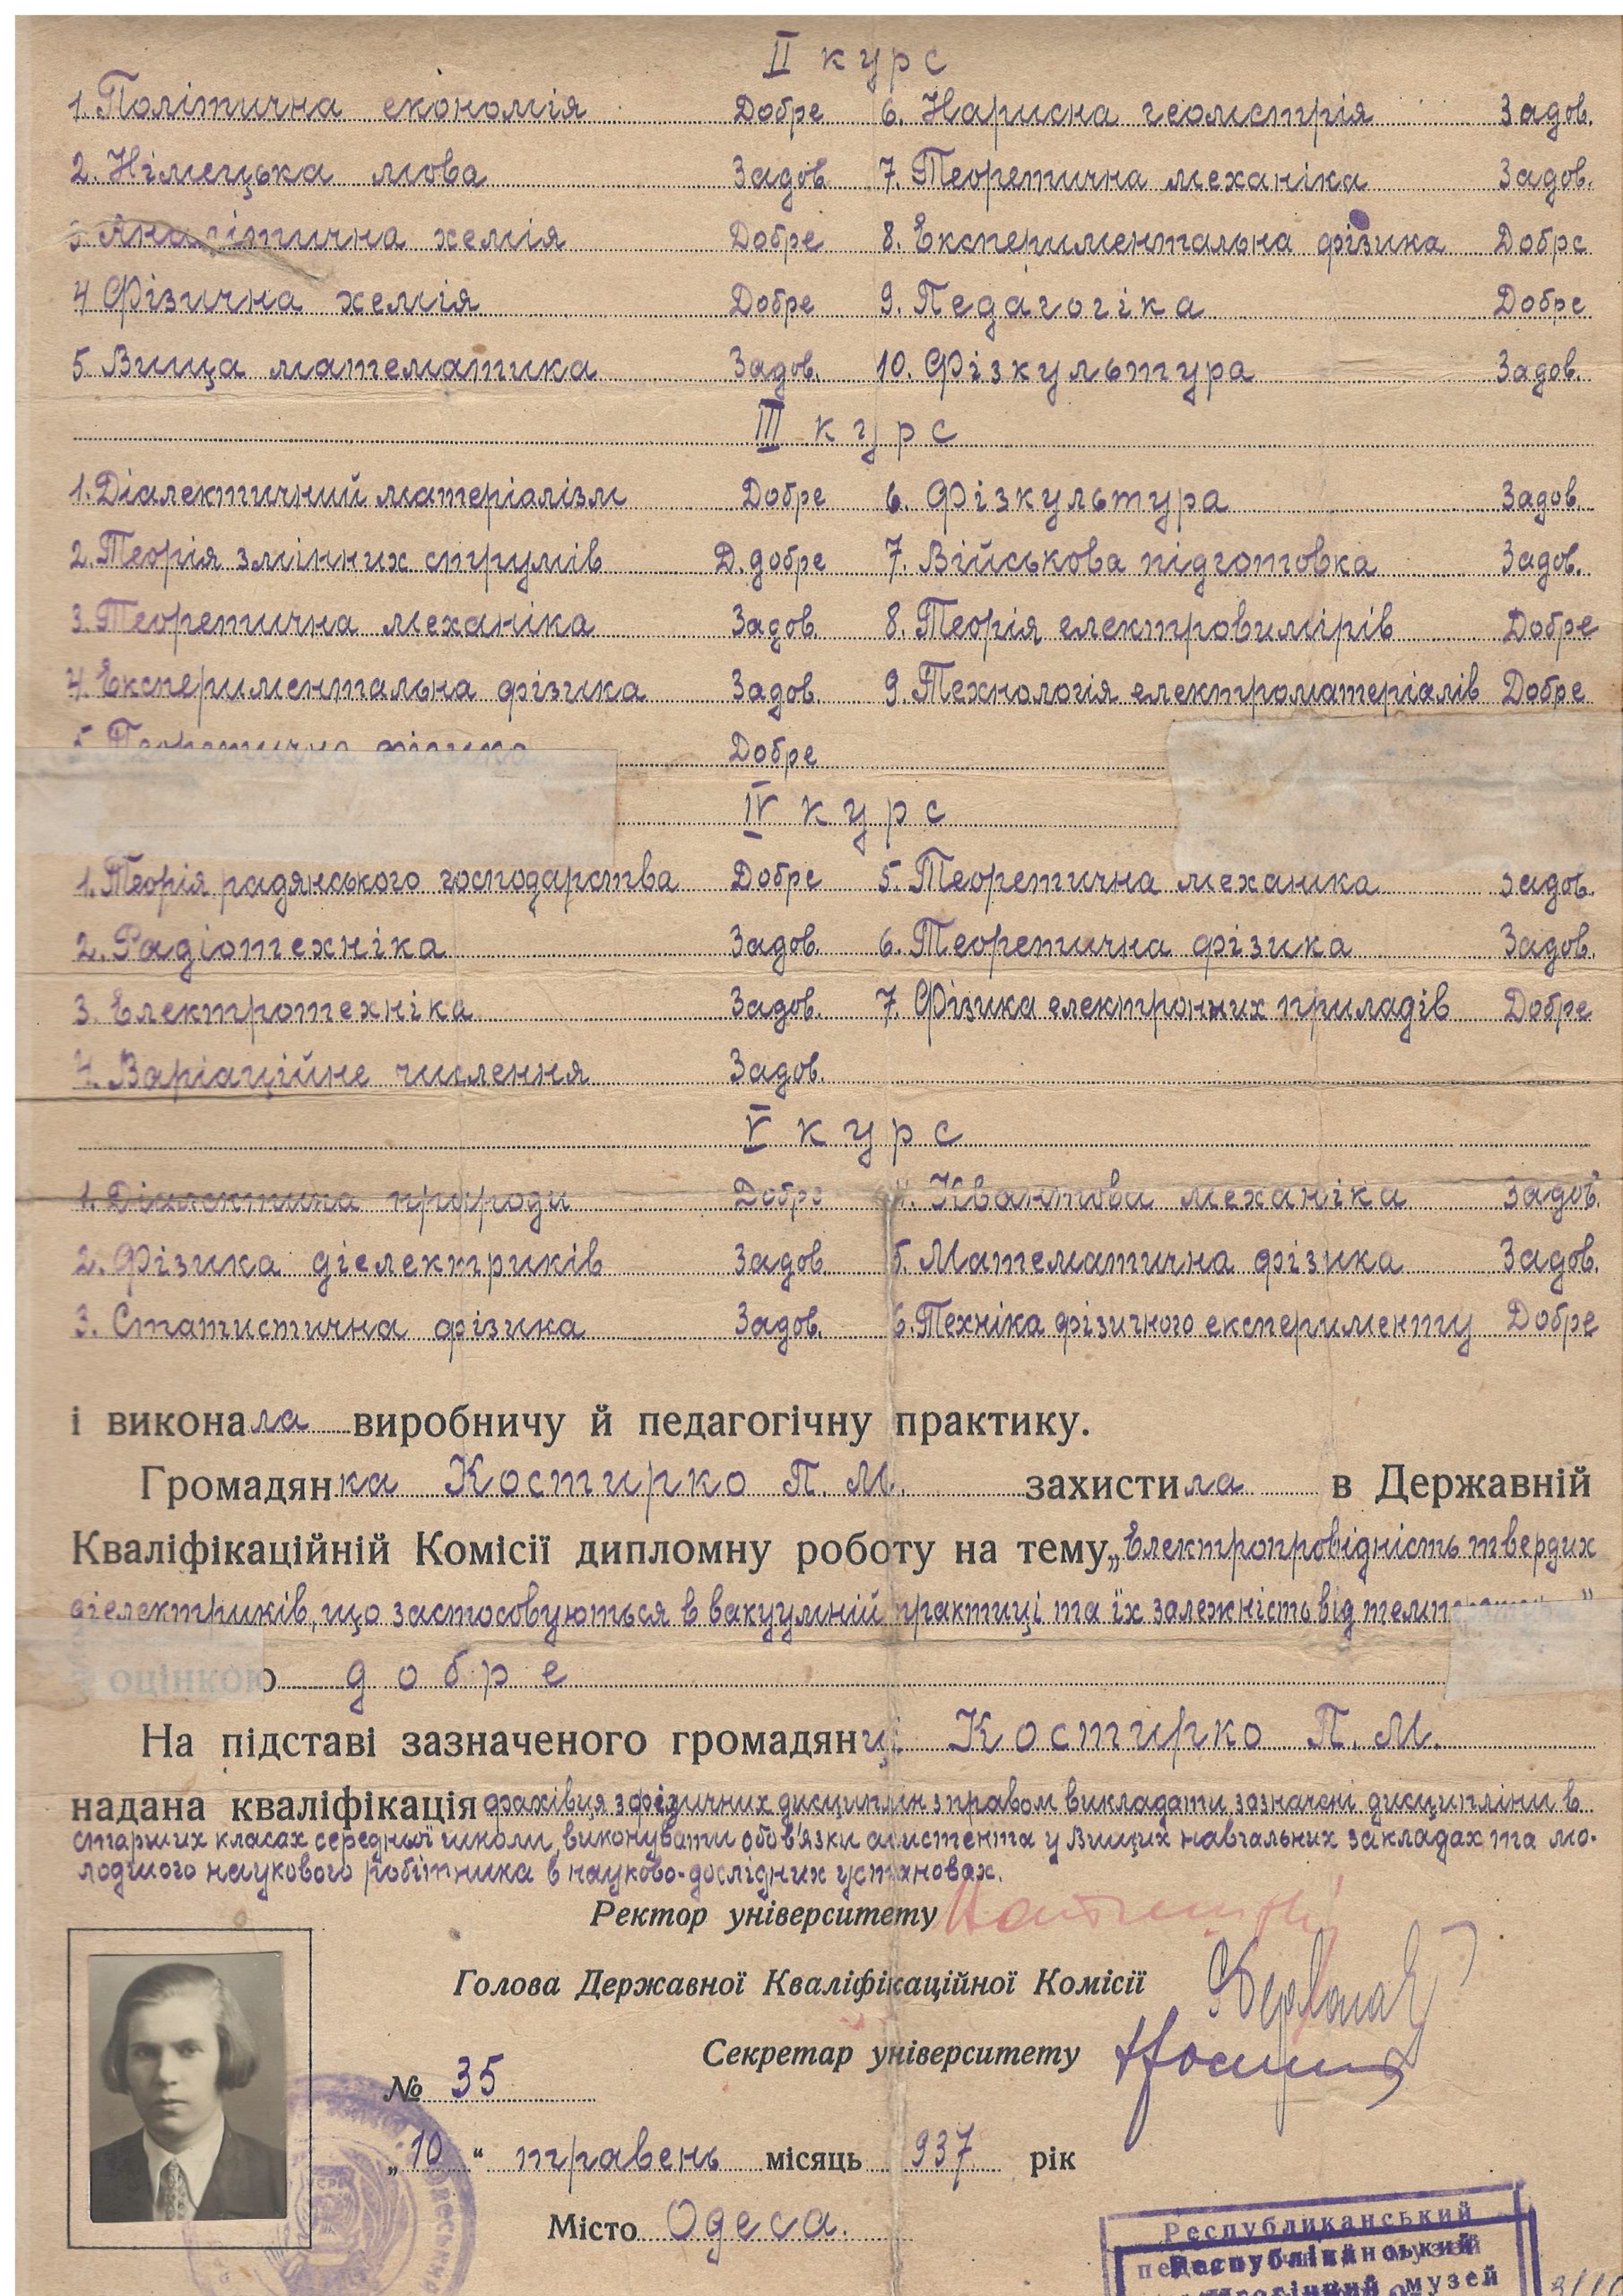 II курс
1. Політична економія Добре 6. Нарисна геометрія Задов.
2. Німецька мова Задов 7. Теоретична механіка Задов.
3. Аналітична хемія Добре 8. Експериментальна фізика Добре
4 Фізична хемія Добре 9. Педагогіка Добре
5. Вища математика Задов. 10. Фізкультура Задов.
III курс
1. Діалектичний матеріалізм Добре 6. Фізкультура Задов.
2. Теорія змінних струмів Д. добре 7. Військова підготовка Задов.
3. Теоретична механіка Задов. 8. Теорія електровимірів Добре
4. Експериментальна фізика Задов. 9. Технологія електроматеріалів Добре
5. Теоретична фізика Добре
IV курс
1. Теорія радянського господарства Добре 5. Теоретична механика Задов.
2. Радіотехніка Задов. 6. Теоретична фізика Задов.
3. Електротехніка Задов. 7. Фізика електронних приладів Добре
4. Варіаційне числення Задов.
V курс
1. Діалектика природи Добре 4. Квантова механіка Задов.
2. Фізика діелектриків Задов. 5. Математична фізика Задов.
3. Статистична фізика Задов. 6. Техніка фізичного експерименту Добре
і виконала виробничу й педагогічну практику.
Громадянка Костирко П. М. захистила в Державній
Кваліфікаційній Комісії дипломну роботу на тему „Електропровідність твердих
діелектриків, що застосовуються в вакуумній практиці та їх залежність від
з оцінкою добре
На підставі зазначеного громадянці Костирко П. М.
надана кваліфікація фахівця з фізичних дисциплін з правом викладати зазначені дисципліни в
старших класах середньої школи, виконувати обов'язки асистента у Вищих навчальних закладах та мо-
лодшого наукового робітника в науково-дослідних установах.
Ректор університету
Голова Державної Кваліфікаційної Комісії
Секретар університету
№ 35
„10“ травень місяць 937 рік
Місто Одеса.
Республиканський
Республіканський
музей